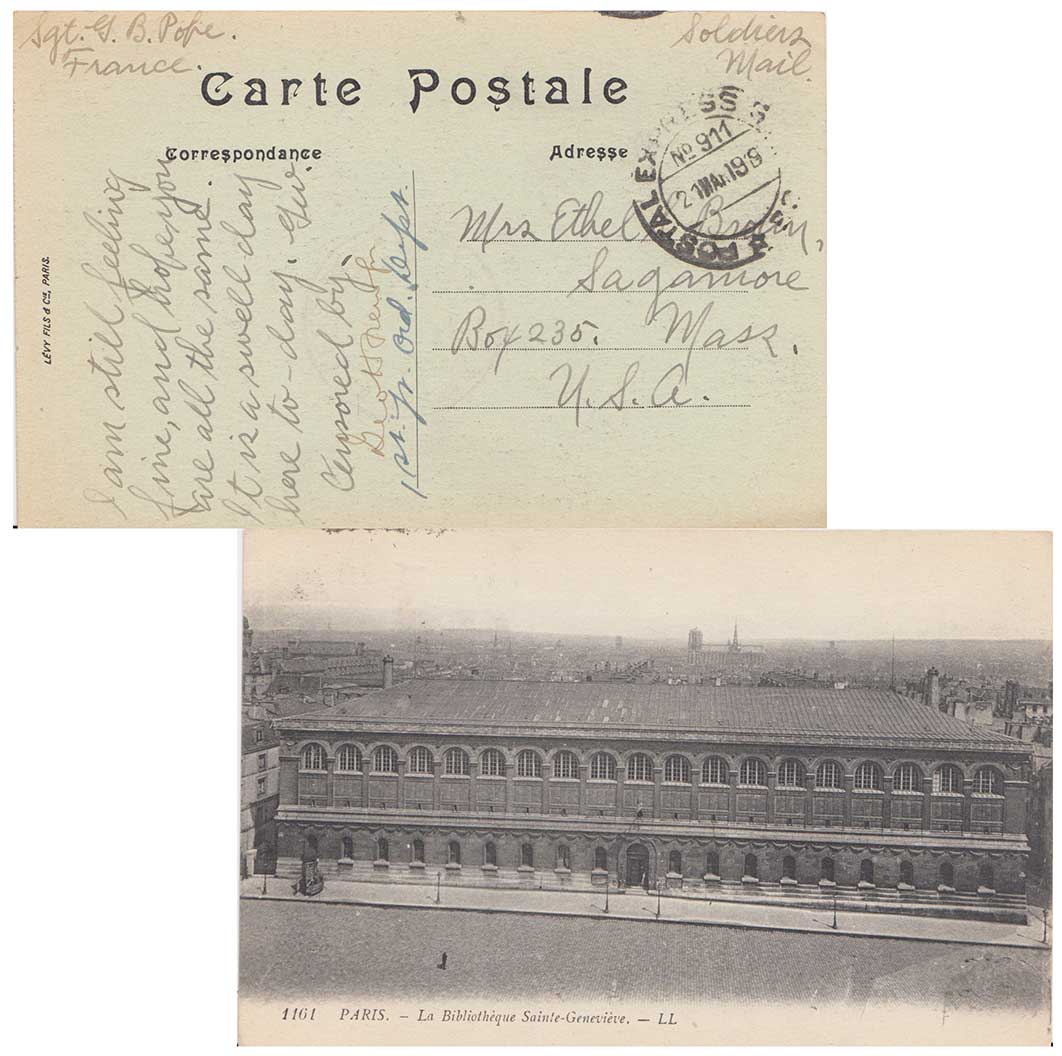 Sgt. G. B. Pope.
France.
Soldiers
Mail
Carte Postale
Correspondance
Adresse
POSTAL EXPRESS SERV
No 911
21 MAR 19
LÉVY FILS & Cie, PARIS.
I am still feeling
fine, and hope you
are all the same.
It is a swell day
here to-day.
Censored by.
1st. Ord. Dept.
Mrs Ethel Brown,
Sagamore
Box 235. Mass.
U.S.A.
1161 PARIS. — La Bibliothèque Sainte-Geneviève. — LL